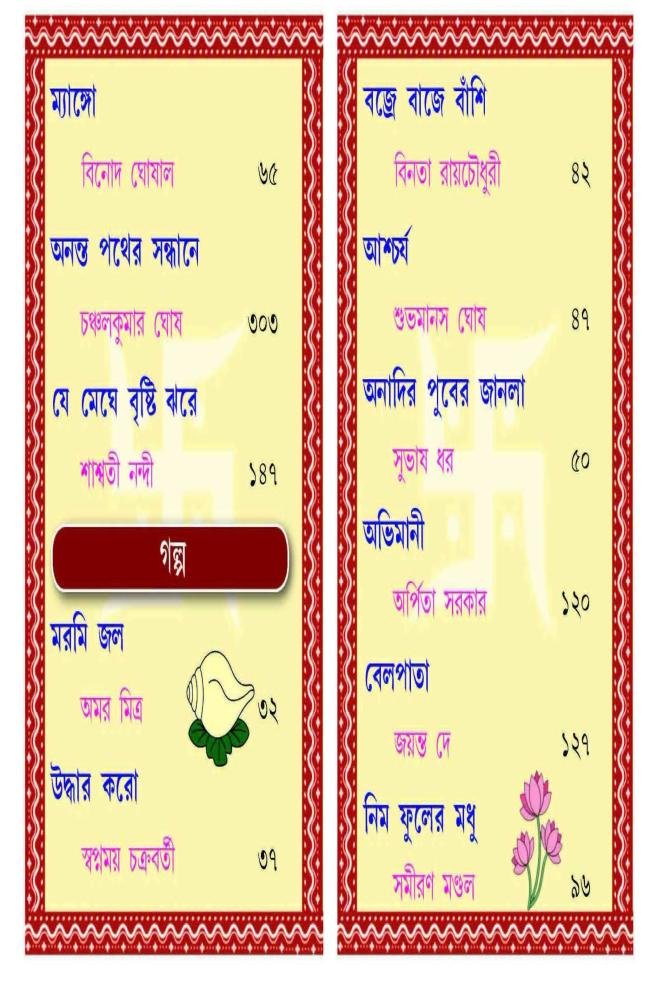 ম্যাঙ্গো
বিনোদ ঘোষাল ৬৫
অনন্ত পথের সন্ধানে
চঞ্চলকুমার ঘোষ ৩০৩
যে মেঘে বৃষ্টি ঝরে
শাশ্বতী নন্দী ১৪৭
গল্প
মরমি জল
অমর মিত্র ৩২
উদ্ধার করো
স্বপ্নময় চক্রবর্তী ৩৭
বজ্রে বাজে বাঁশি
বিনতা রায়চৌধুরী ৪২
আশ্চর্য
শুভমানস ঘোষ ৪৭
অনাদির পুবের জানলা
সুভাষ ধর ৫০
অভিমানী
অর্পিতা সরকার ১২০
বেলপাতা
জয়ন্ত দে ১২৭
নিম ফুলের মধু
সমীরণ মণ্ডল ৯৬